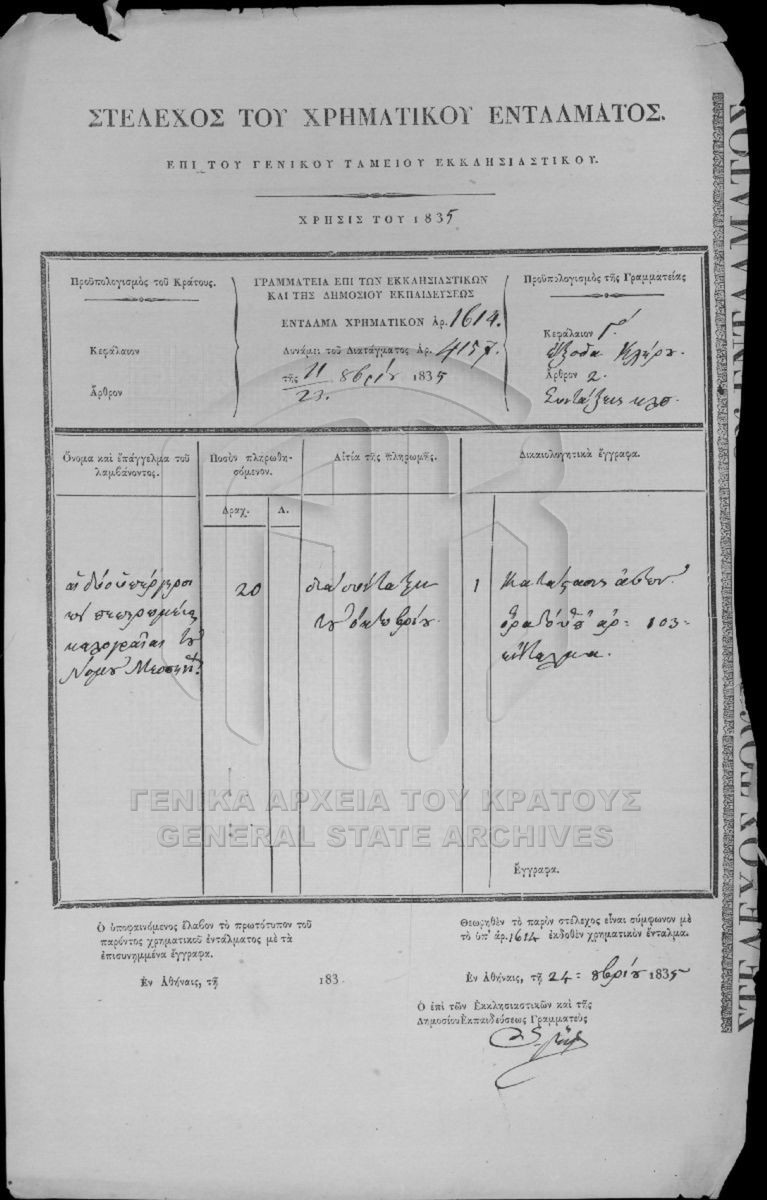 ΣΤΕΛΕΧΟΣ ΤΟΥ ΧΡΗΜΑΤΙΚΟΥ ΕΝΤΑΛΜΑΤΟΣ.
ΕΠΙ ΤΟΥ ΓΕΝΙΚΟΥ ΤΑΜΕΙΟΥ ΕΚΚΛΗΣΙΑΣΤΙΚΟΥ.
ΧΡΗΣΙΣ ΤΟΥ 1835
Προϋπολογισμὸς τοῦ Κράτους.
Κεφάλαιον
Ἄρθρον
ΓΡΑΜΜΑΤΕΙΑ ΕΠΙ ΤΩΝ ΕΚΚΛΗΣΙΑΣΤΙΚΩΝ
ΚΑΙ ΤΗΣ ΔΗΜΟΣΙΟΥ ΕΚΠΑΙΔΕΥΣΕΩΣ
ΕΝΤΑΛΜΑ ΧΡΗΜΑΤΙΚΟΝ Ἀρ. 1614.
Δυνάμει τοῦ Διατάγματος Ἀρ. 4157.
τῆς 11/23. 8βρίου 1835
Προϋπολογισμὸς τῆς Γραμματείας
Κεφάλαιον Γ΄
ἔξοδα Κλήρου.
Ἄρθρον 2.
Συντάξεις κλπ.
Ὄνομα καὶ ἐπάγγελμα τοῦ
λαμβάνοντος.
Ποσὸν πληρωθη-
σόμενον.
Αἰτία τῆς πληρωμῆς.
Δικαιολογητικὰ ἔγγραφα.
Δραχ.
Λ.
καλογραῖαι τοῦ
Νομοῦ Μεσσην.
20
διὰ σύνταξιν
τοῦ ὀκτωβρίου.
1
Κατάστασις
ὑπ' ἀρ. 103
ἔνταλμα.
Ἔγγραφα.
ΓΕΝΙΚΑ ΑΡΧΕΙΑ ΤΟΥ ΚΡΑΤΟΥΣ
GENERAL STATE ARCHIVES
Ὁ ὑποφαινόμενος ἔλαβον τὸ πρωτότυπον τοῦ
παρόντος χρηματικοῦ ἐντάλματος μὲ τὰ
ἐπισυνημμένα ἔγγραφα.
Ἐν Ἀθήναις, τῇ 183
Θεωρηθὲν τὸ παρὸν στέλεχος εἶναι σύμφωνον μὲ
τὸ ὑπ' ἀρ. 1614 ἐκδοθὲν χρηματικὸν ἔνταλμα.
Ἐν Ἀθήναις, τῇ 24 8βρίου 1835
Ὁ ἐπὶ τῶν Ἐκκλησιαστικῶν καὶ τῆς
Δημοσίου Ἐκπαιδεύσεως Γραμματεὺς